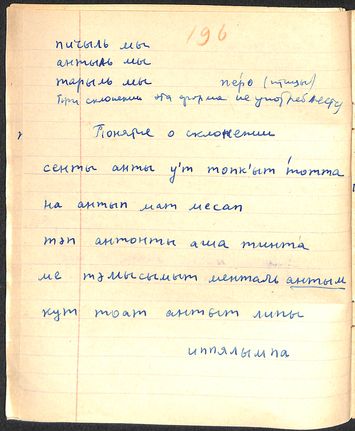 196
пичыль мы
антыль мы
тарыль мы перо (птицы)
При склонении эта форма не употребляется
Понятие о склонении
сенты анты у'т топк'ыт тотта
на антып мат месап
тэп антонты аша тинта
ме тэмысымыт менталь антым
кут тоат антыт липы
иппялымпа